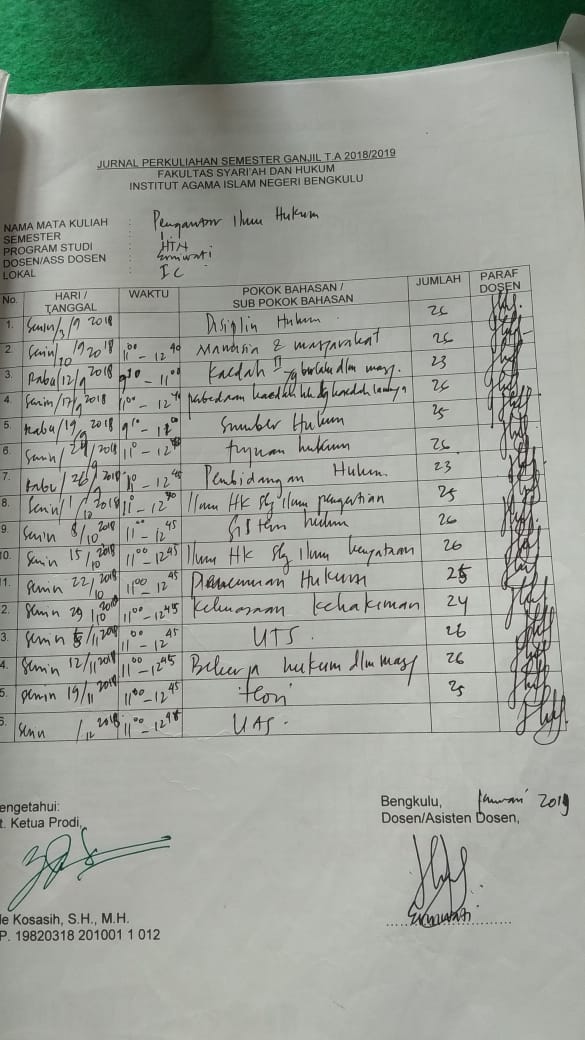 JURNAL PERKULIAHAN SEMESTER GANJIL T.A 2018/2019
FAKULTAS SYARI'AH DAN HUKUM
INSTITUT AGAMA ISLAM NEGERI BENGKULU
NAMA MATA KULIAH : Pengantar Ilmu Hukum
SEMESTER : 1
PROGRAM STUDI : HTN
DOSEN/ASS DOSEN : Ermiwati
LOKAL : I C
No. HARI / TANGGAL WAKTU POKOK BAHASAN / SUB POKOK BAHASAN JUMLAH PARAF DOSEN
1. Senin/3/9 2018 Disiplin Hukum 26
2. Senin/10/9 2018 11.00 - 12.40 Manusia & masyarakat 26
3. Rabu/12/9 2018 9.10 - 11.00 Kaedah yg berlaku dlm masy. 23
4. Senin/17/9 2018 11.00 - 12.40 perbedaan kaedah hk dg kaedah lainnya 26
5. Rabu/19/9 2018 Sumber Hukum 25
6. Senin/24/9 2018 tujuan hukum 26
7. Rabu/26/9 2018 - 12.45 Pembidangan Hukum 23
8. Senin/1/10 2018 11.00 - 12.40 Ilmu HK sbg ilmu pengertian 25
9. Senin 8/10 2018 11.00 - 12.45 Sistem hukum 26
10. Senin 15/10 2018 11.00 - 12.45 Ilmu HK sbg Ilmu kenyataan 26
11. Senin 22/10 2018 11.00 - 12.45 Penemuan Hukum 25
2. Senin 29/10 2018 11.00 - 12.45 Kekuasaan kehakiman 24
3. Senin 5/11 2018 11.00 - 12.45 UTS. 26
4. Senin 12/11 2018 11.00 - 12.45 Bekerja hukum dlm masy 26
5. Senin 19/11 2018 11.00 - 12.45 teori 25
6. Senin /12 2018 11.00 - 12.45 UAS.
engetahui:
t. Ketua Prodi,
Bengkulu, Januari 2019
Dosen/Asisten Dosen,
de Kosasih, S.H., M.H.
P. 19820318 201001 1 012
Ermiwati